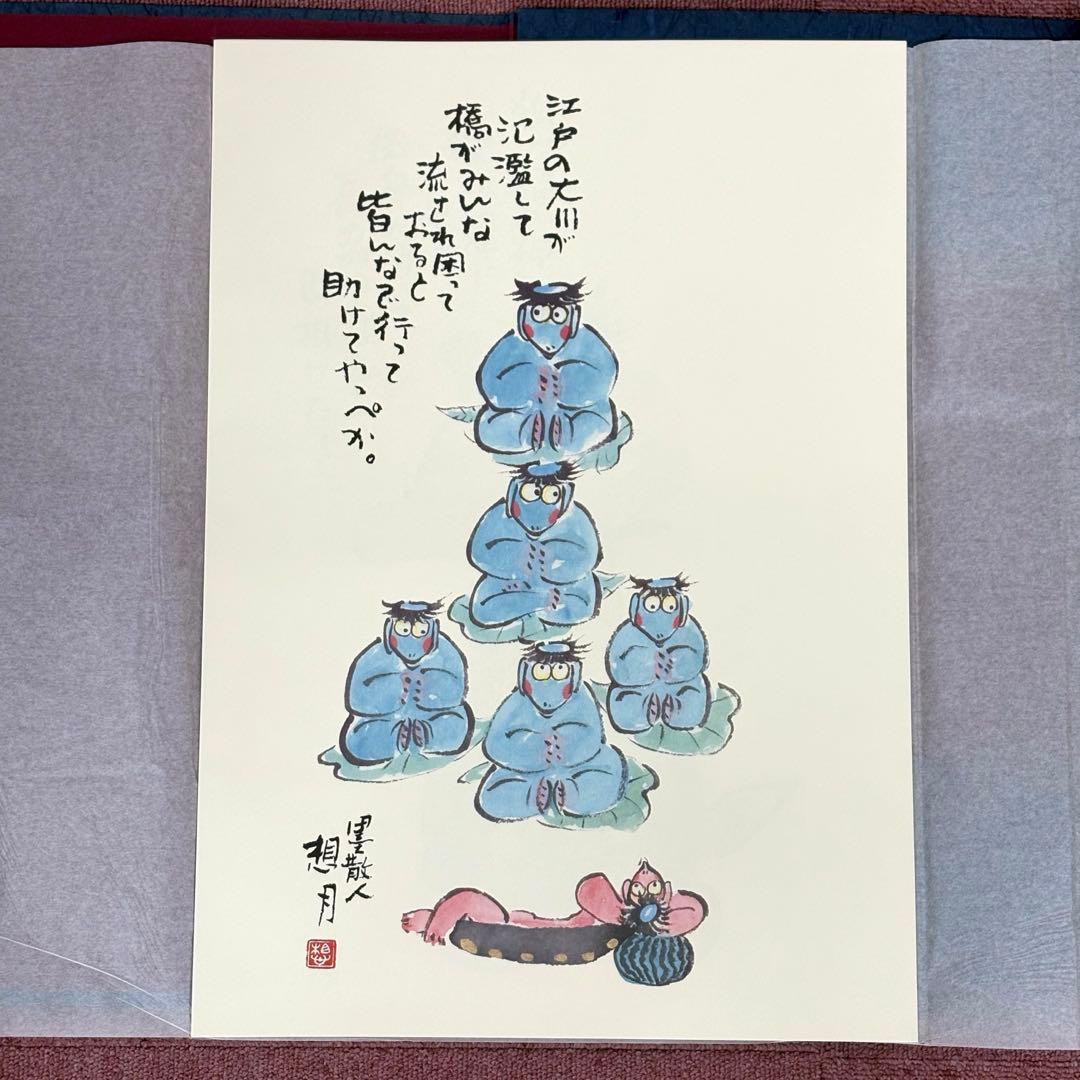 江戸の大川が
氾濫して
橋がみんな
流され困って
おると
皆んなで行って
助けてやっぺか。
墨散人
想月